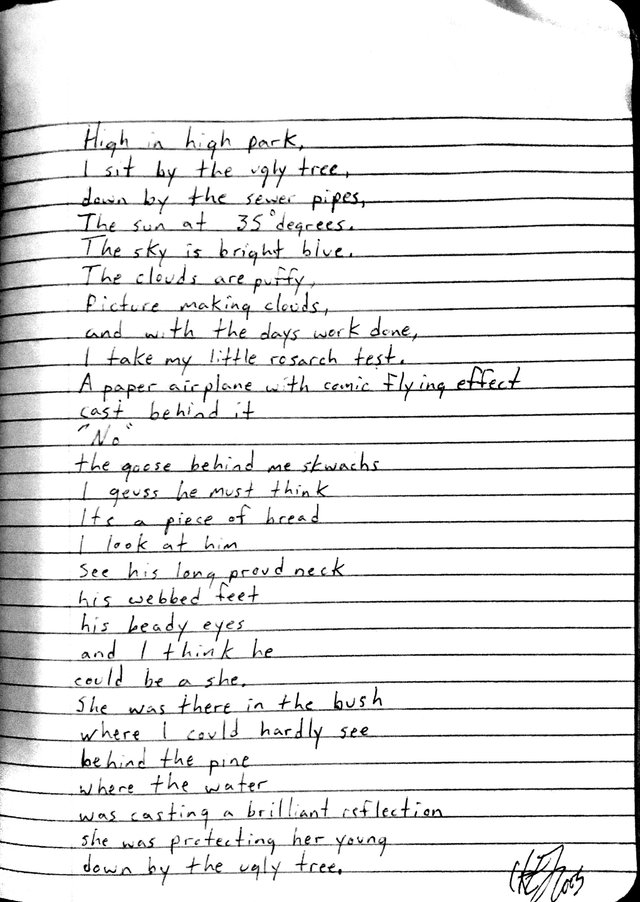 High in high park,
I sit by the ugly tree,
down by the sewer pipes,
The sun at 35° degrees.
The sky is bright blue.
The clouds are puffy,
Picture making clouds,
and with the days work done,
I take my little rosarch test.
A paper airplane with comic flying effect
cast behind it
"No"
the goose behind me skwachs
I geuss he must think
Its a piece of bread
I look at him
see his long proud neck
his webbed feet
his beady eyes
and I think he
could be a she.
She was there in the bush
where I could hardly see
behind the pine
where the water
was casting a brilliant reflection
she was protecting her young
down by the ugly tree.
2005